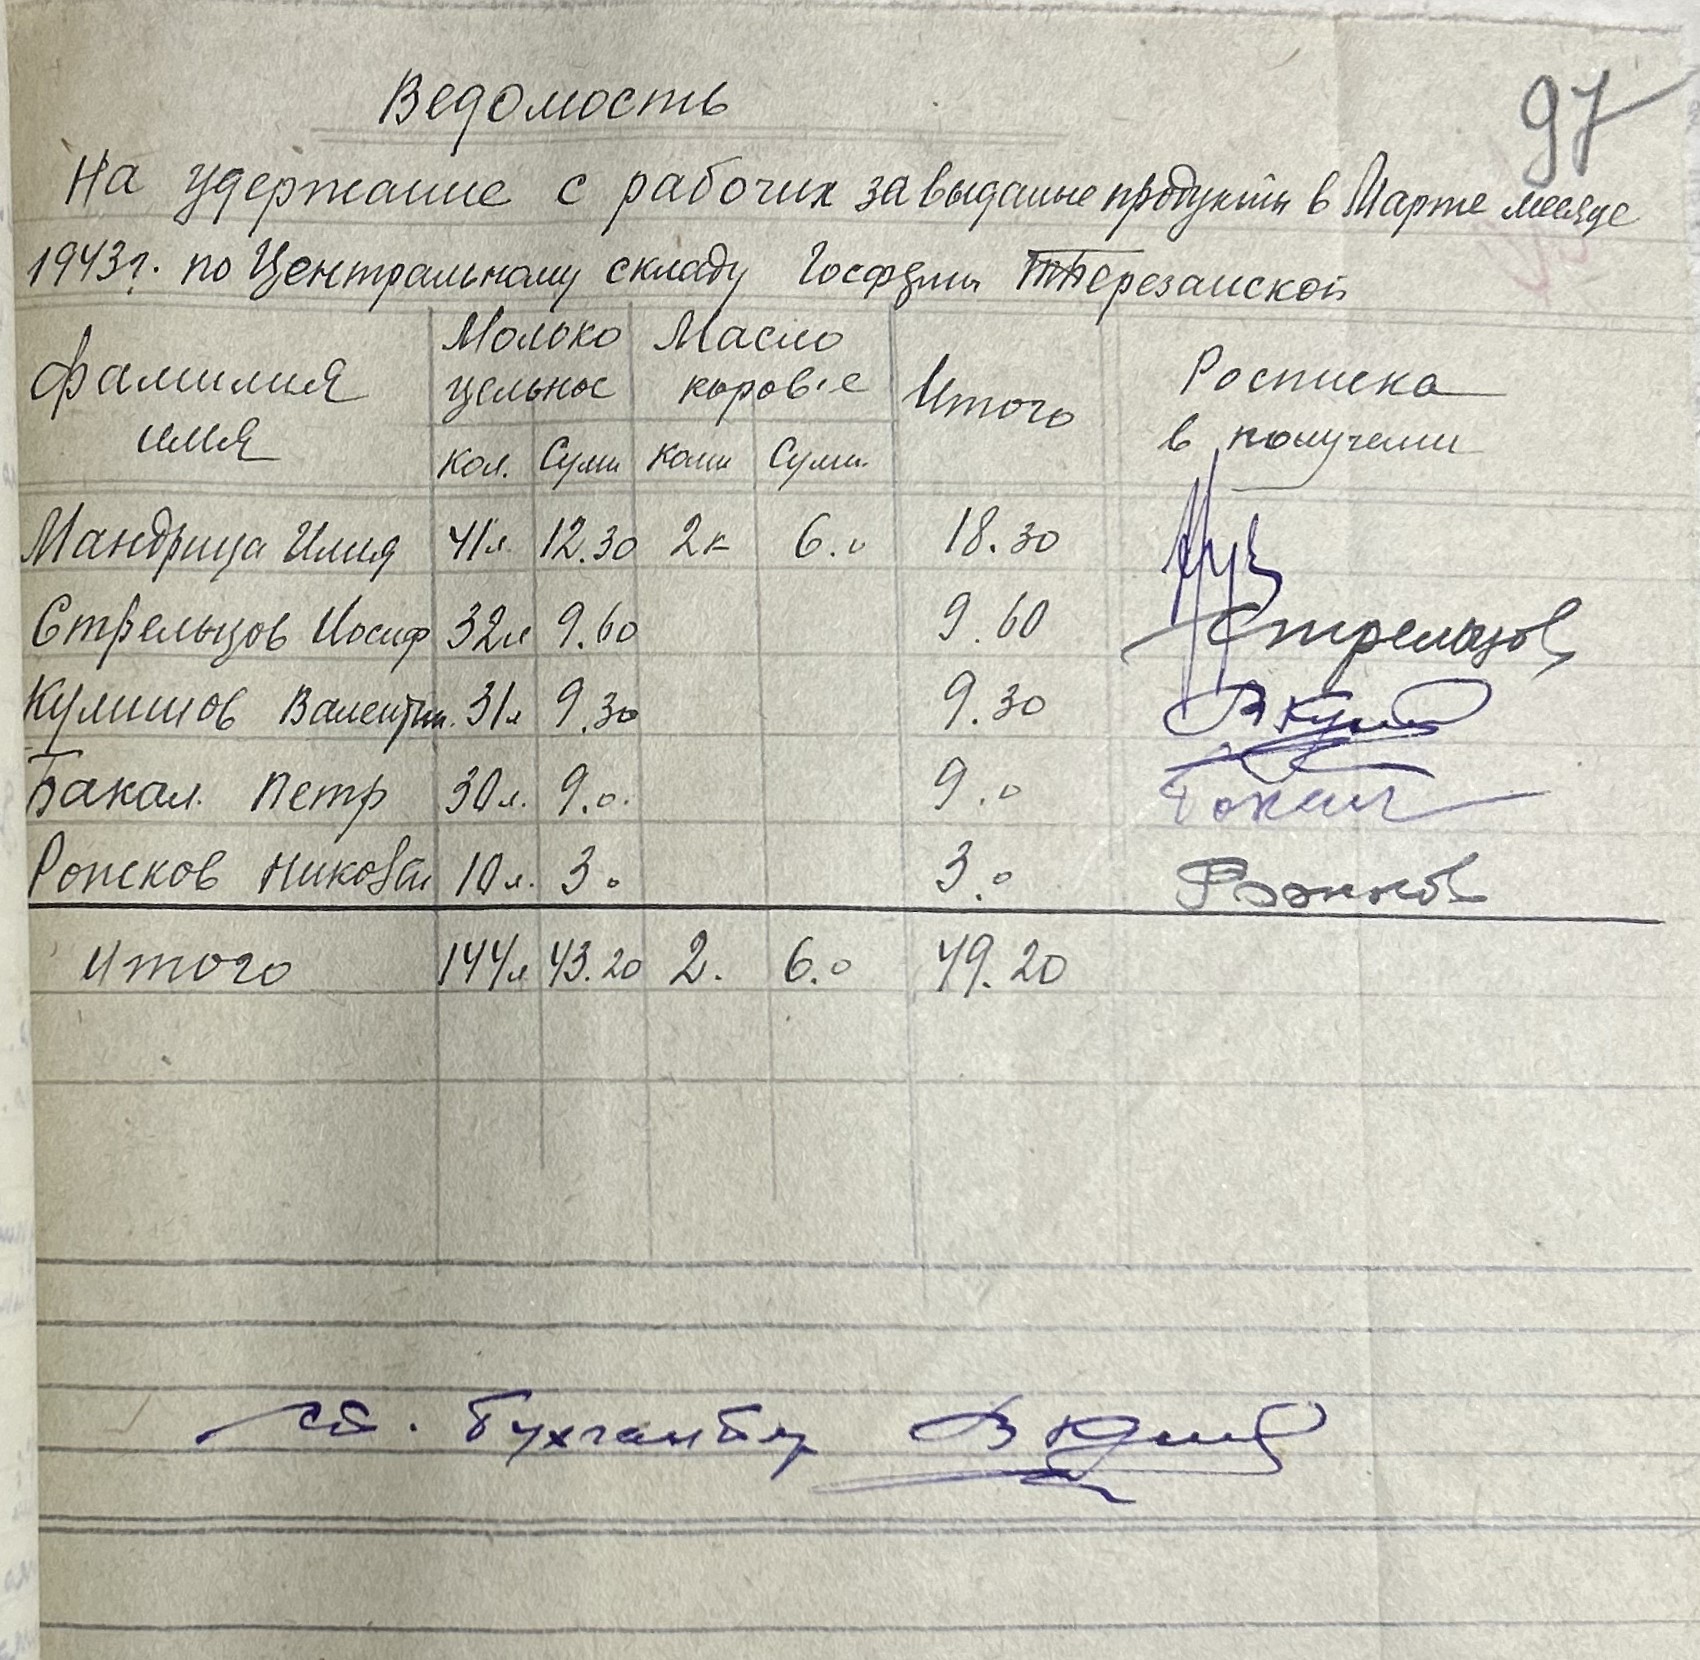 97
Ведомость
На удержание с рабочих за выданые продукты в Марте месяце
1943 г. по Центральному складу Госфермы Березанской
Фамилия имя Молоко цельное Масло коров'е Итого Росписка в получении
Кол. Сумм Коли Сумм.
Мандрица Илия 41 л. 12.30 2 к 6.0 18.30
Стрельцов Иосиф 32 л 9.60 9.60 Стрельцов
Кулишов Валентин. 31 л 9.30 9.30 ВКул
Бакал. Петр 30 л. 9.0. 9.0
Рожков Николай 10 л. 3.0 3.0 Рожков
Итого 144 л 43.20 2. 6.0 49.20
Ст. Бухгалтер